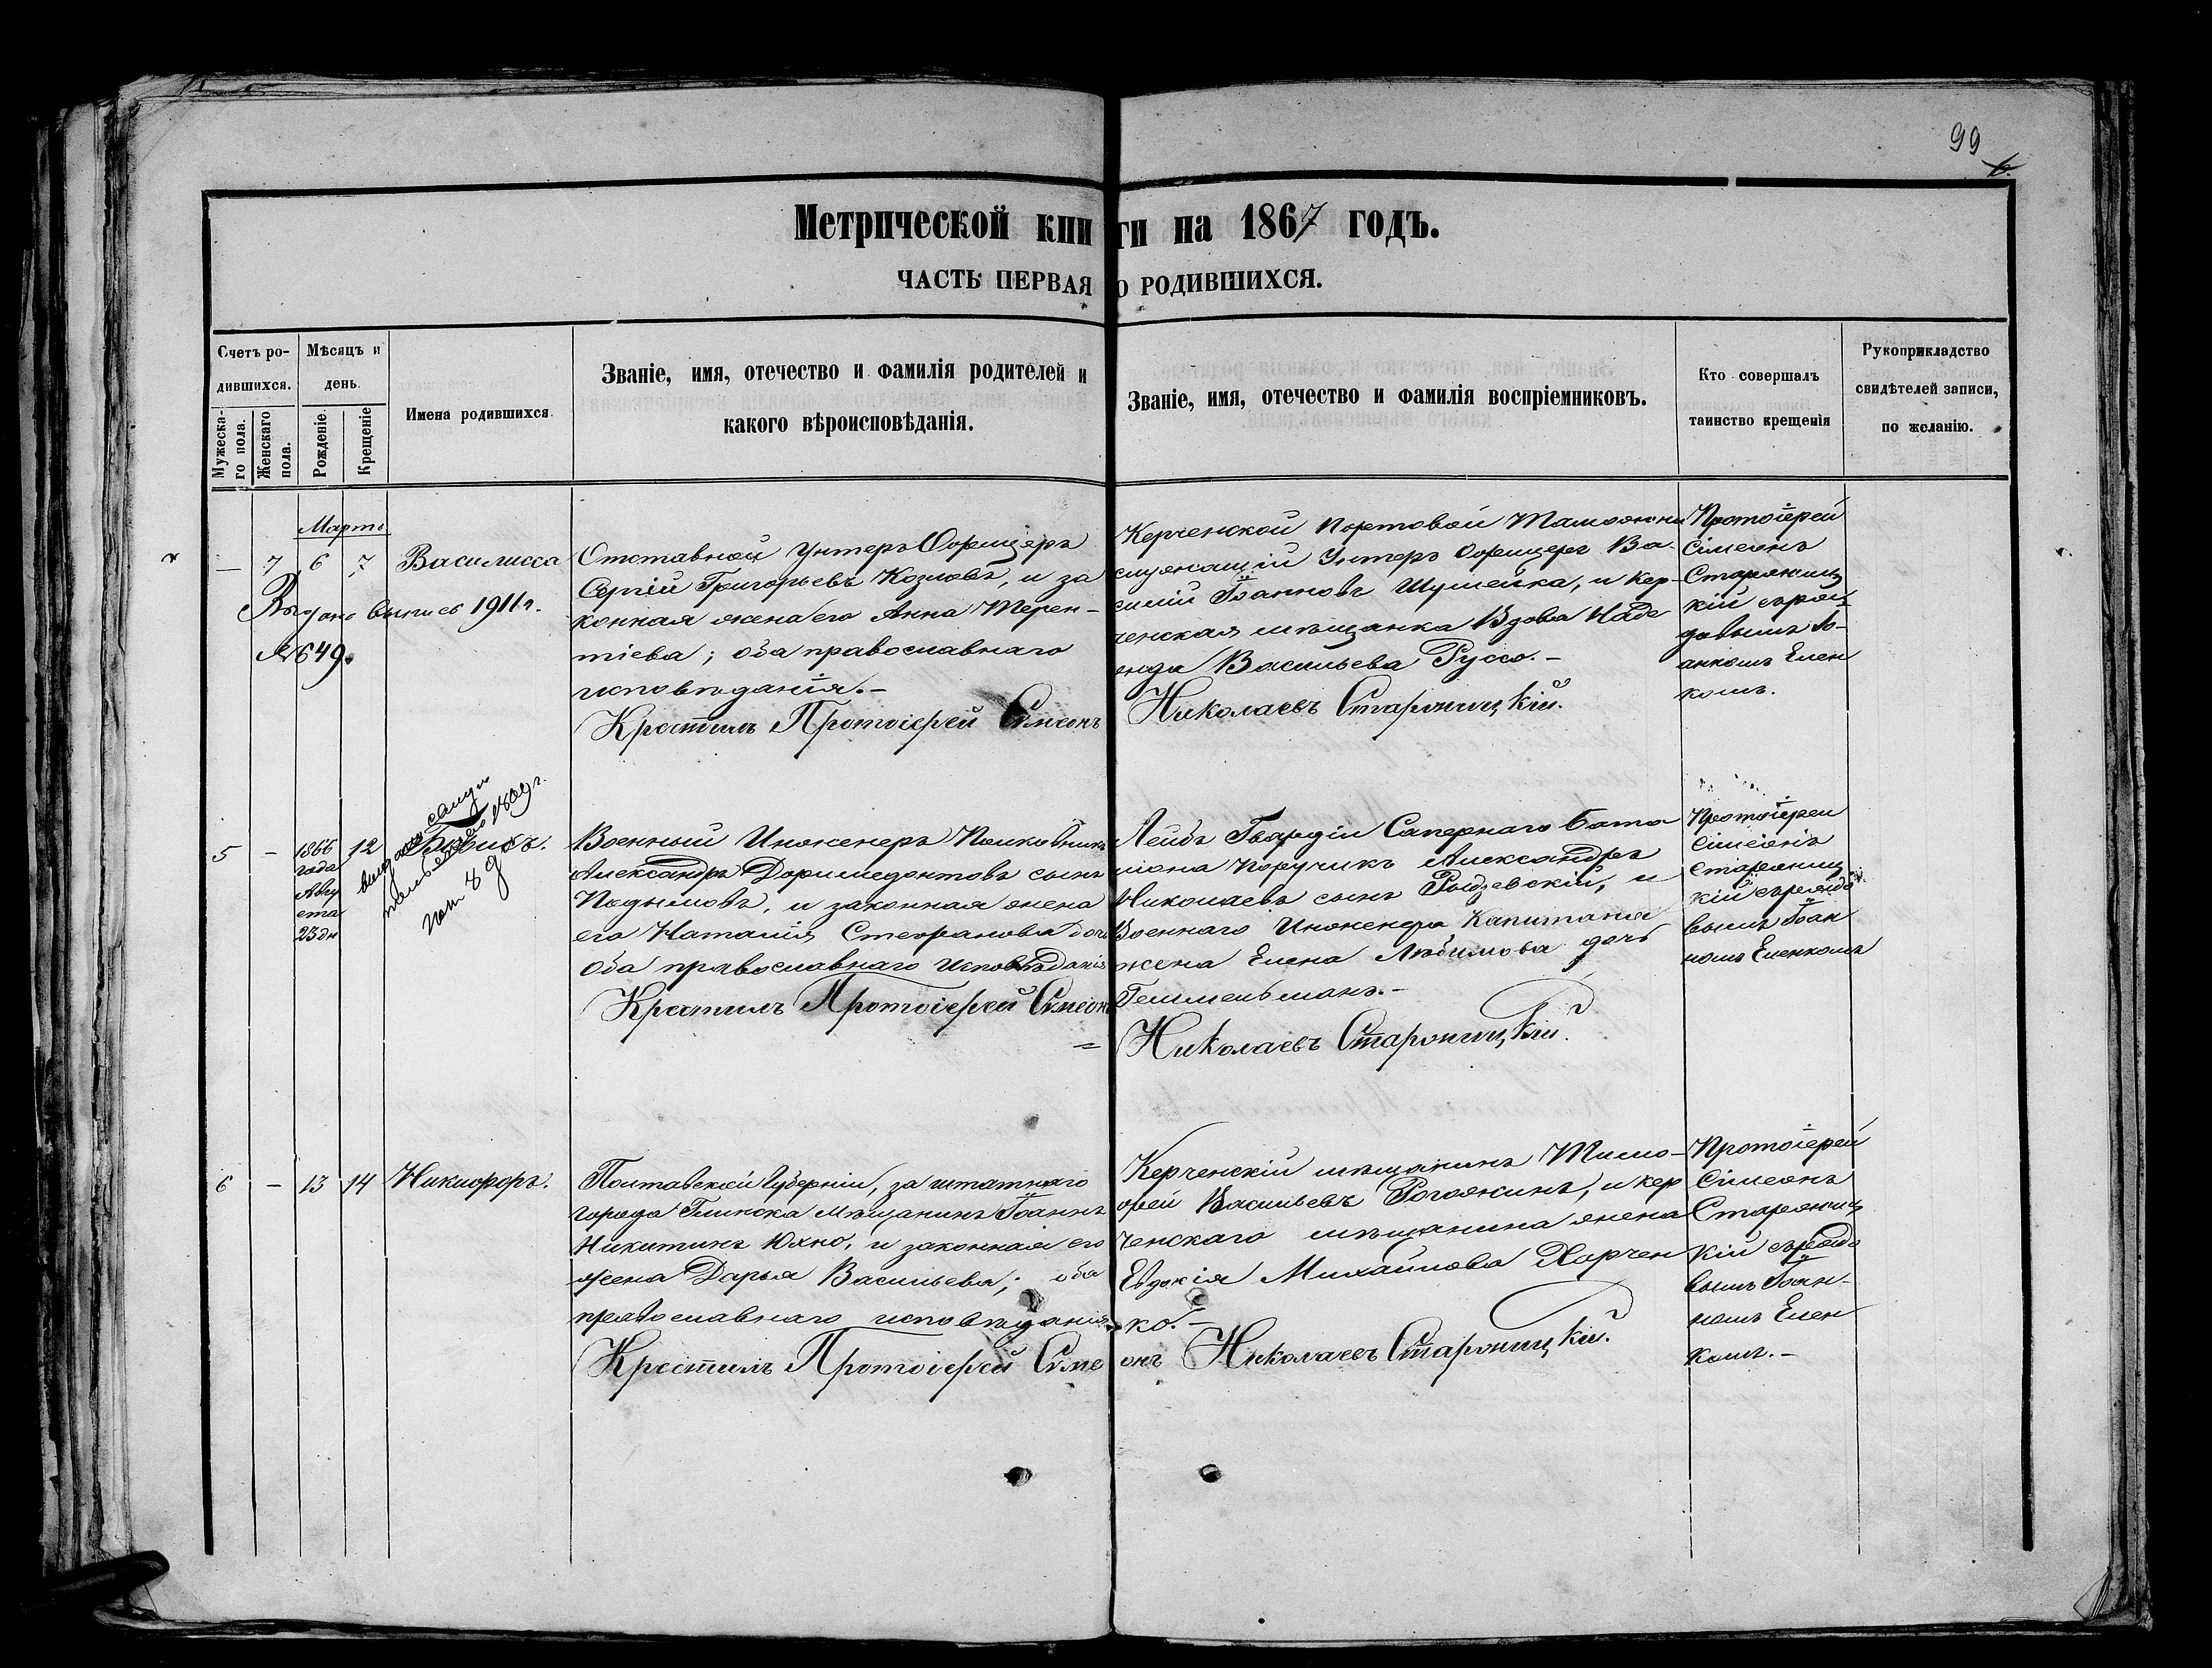 99
Метрической книги на 1867 годъ.
ЧАСТЬ ПЕРВАЯ О РОДИВШИХСЯ.
Счетъ родившихся.
Мужескаго пола.
Женскаго пола.
Мѣсяцъ и день.
Рожденіе.
Крещеніе
Имена родившихся.
Званіе, имя, отечество и фамилія родителей и
какого вѣроисповѣданія.
Званіе, имя, отечество и фамилія воспріемниковъ.
Кто совершалъ
таинство крещенія
Рукоприкладство
свидѣтелей записи,
по желанію.
Мартъ
— 7 6 7 Василисса
Выдана выпись 1911 г.
№ 649.
Отставной Унтеръ Офицеръ
Сергій Григорьевъ Козловъ, и за
конная жена его Анна Терен-
тіева; оба православнаго
исповѣданія.—
Крестилъ Протоіерей Симеонъ
Керченской Портовой Таможни
служащій Унтеръ Офицеръ Ва-
силій Іоанновъ Шулейка, и Кер-
ченская мѣщанка Вдова Наде
жда Васильева Руссо.—
Николаевъ Старожицкій.
Протоіерей
Сімеонъ
Старожиц
кій съ ря
довымъ Іо-
анномъ Елен
комъ.
5 — 1866 года Авгу ста 23 дн 12
1869 г.
Военный Инженеръ Полковникъ
Александръ Доримедонтовъ сынъ
Подымовъ, и законная жена
его Наталія Стефанова дочь
Оба православнаго исповѣданія
Крестилъ Протоіерей Симеонъ
Лейбъ Гвардіи Сапернаго бата
ліона Поручикъ Александръ
Николаевъ сынъ Рыдзевскій, и
Военнаго Инженера Капитана
жена Елена Любимова дочь
Гешмельманъ.—
Николаевъ Старожицкій.
Протоіереи
Сімеонъ
Старожиц
кій съ рядо
вымъ Іоан
номъ Еленкомъ
6 — 13 14 Никифоръ.
Полтавской Губерніи, за штатнаго
города Глинска Мѣщанинъ Іоаннъ
Никитинъ Юхно, и законная его
жена Дарья Васильева; оба
православнаго исповѣданія
Крестилъ Протоіерей Симе
Керченскій мѣщанинъ Тимо-
фей Васильевъ Рогожинъ, и Кер
ченскаго мѣщанина жена
Евдокія Михайлова Харчен
ко.—
онъ Николаевъ Старожицкій.
Протоіерей
Сімеонъ
Старожиц
кій съ рядо
вымъ Іоан-
номъ Елен
комъ.—